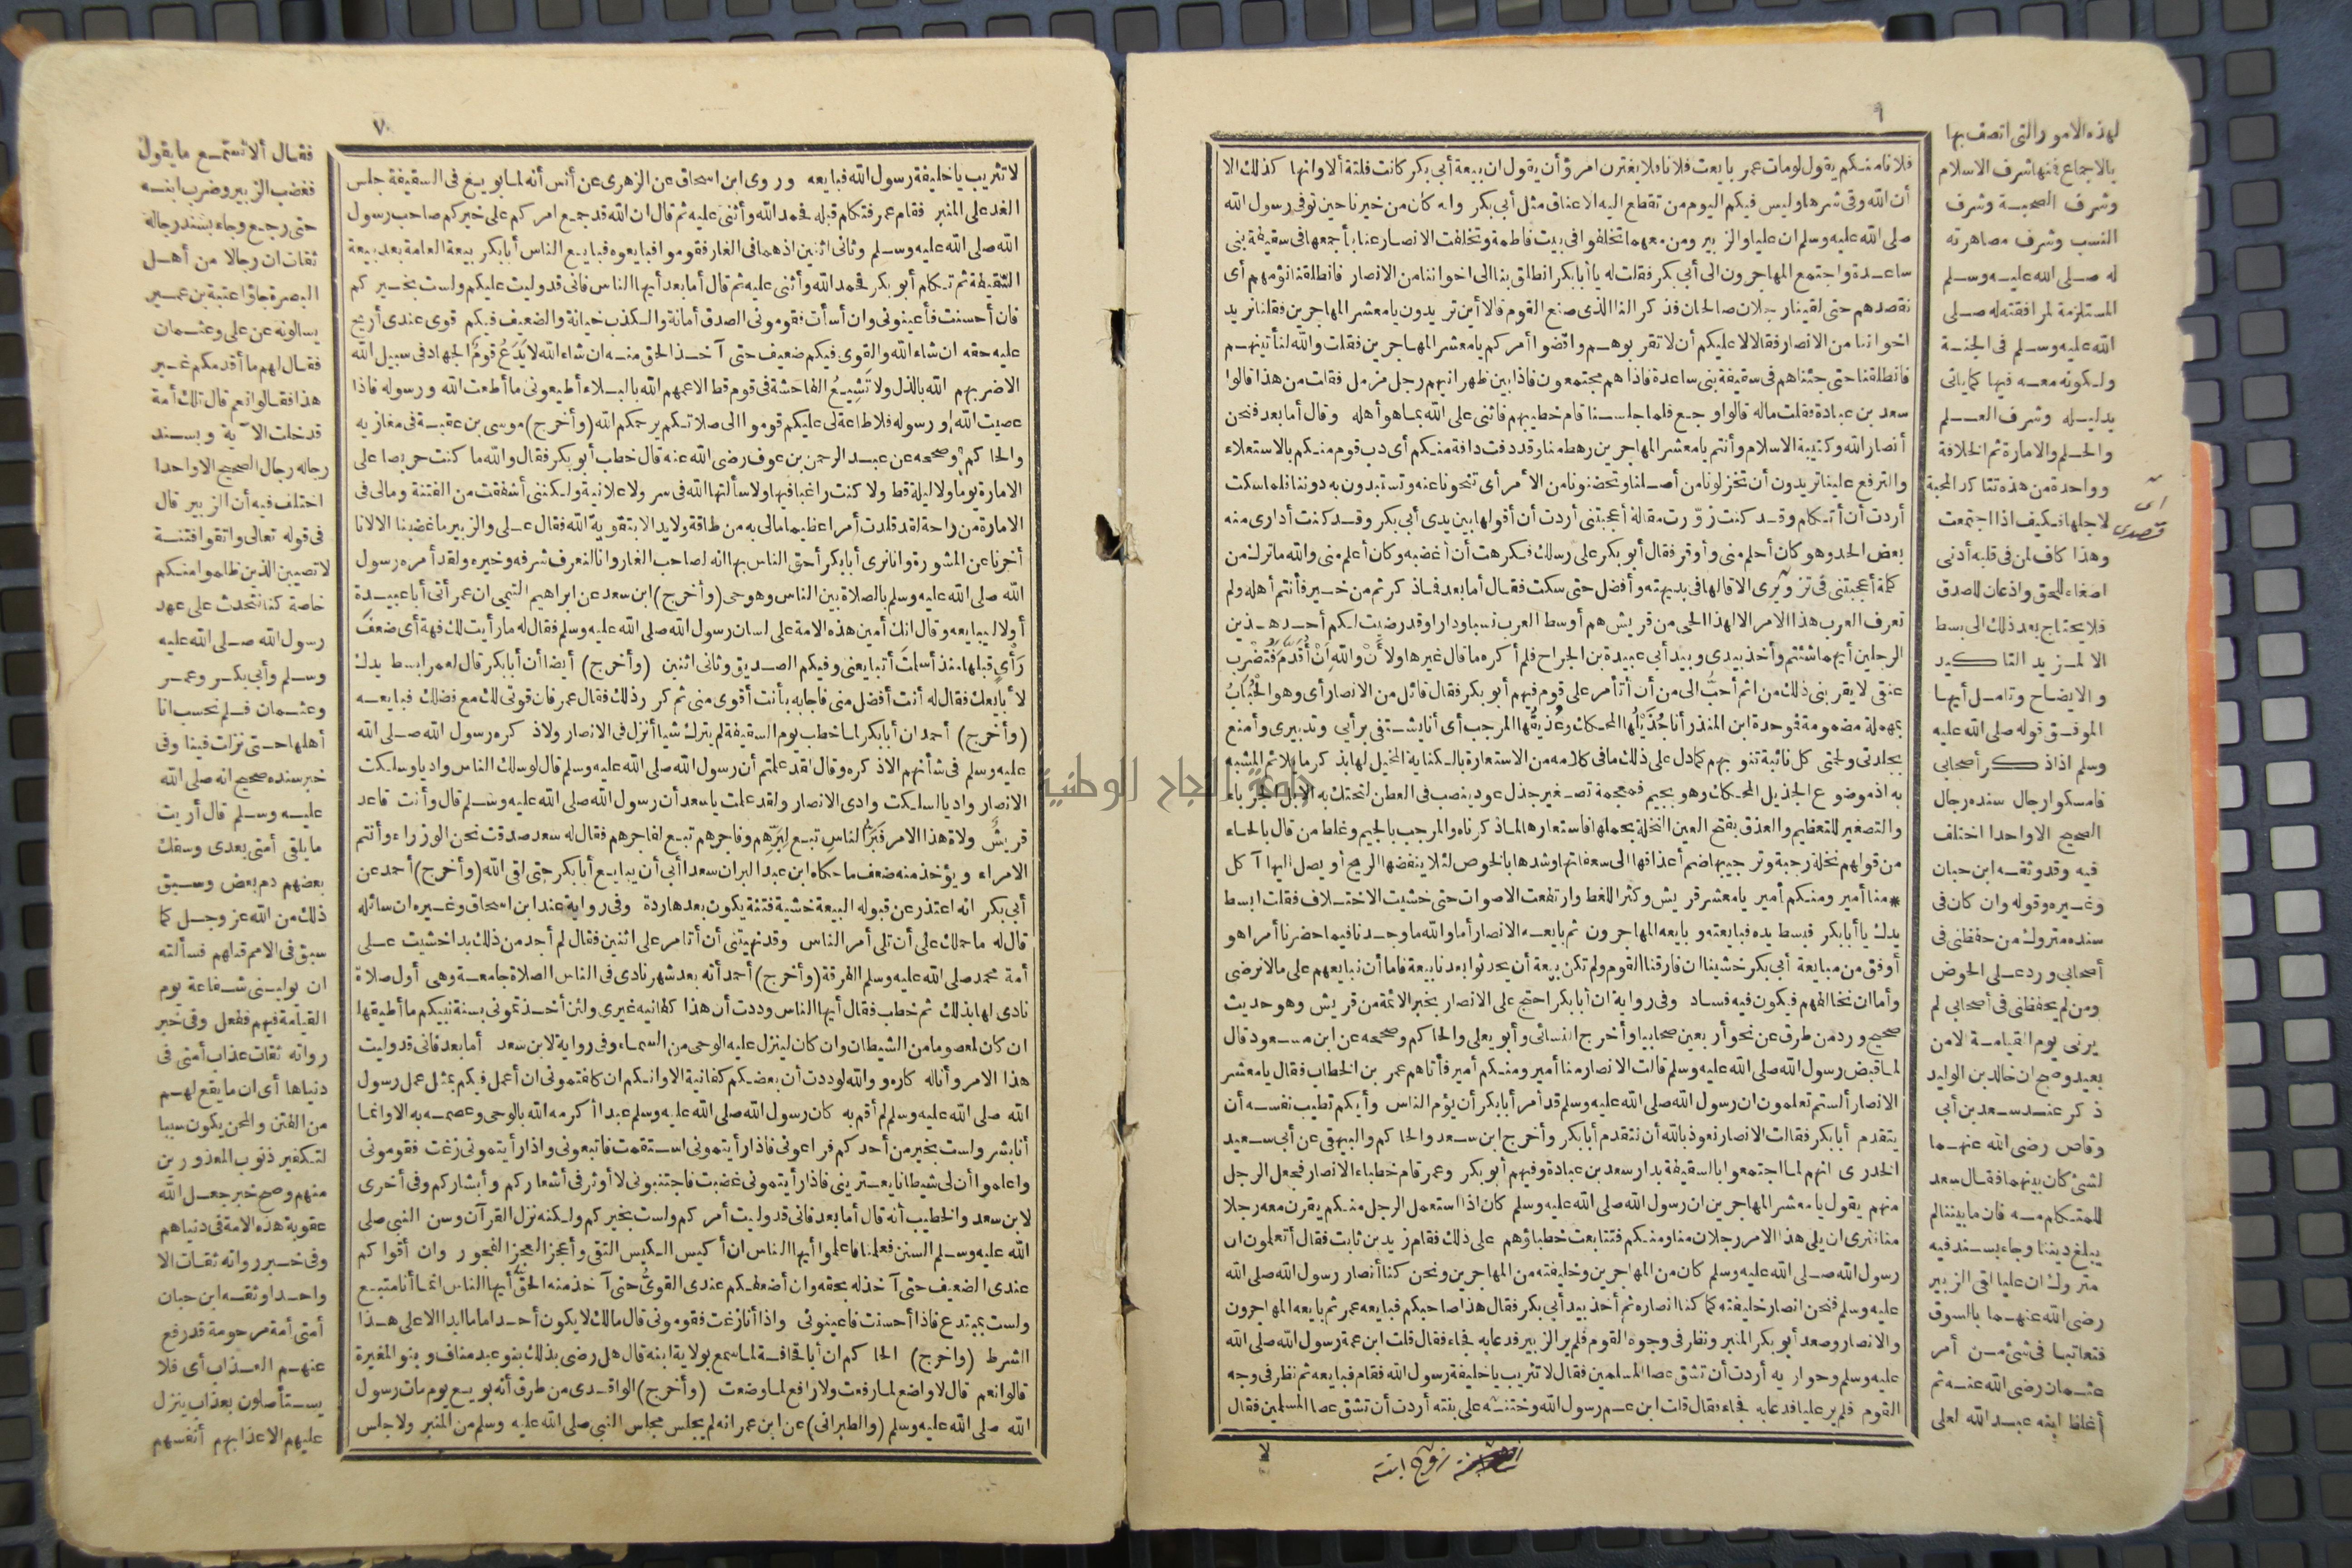 ٦
فلانا منكم يقول لو مات عمر بايعت فلانا فلا يغترن امرؤ أن يقول ان بيعة أبي بكر كانت فلتة ألا وانها كذلك الا
أن الله وقى شرها وليس فيكم اليوم من تقطع اليه الاعناق مثل أبي بكر وانه كان من خيرنا حين توفى رسول الله
صلى الله عليه وسلم ان عليا والزبير ومن معهما تخلفوا فى بيت فاطمة وتخلفت الانصار عنا بأجمعها فى سقيفة بنى
ساعدة واجتمع المهاجرون الى أبي بكر فقلت له يا أبا بكر انطلق بنا الى اخواننا من الانصار فانطلقنا نؤمهم أى
نقصدهم حتى لقينا رجلان صالحان فذكرا لنا الذى صنع القوم قالا أين تريدون يا معشر المهاجرين فقلنا نريد
اخواننا من الانصار فقالا لا عليكم أن لا تقربوهم واقضوا أمركم يا معشر المهاجرين فقلت والله لنأتينهم
فانطلقنا حتى جئناهم فى سقيفة بنى ساعدة فاذا هم مجتمعون فاذا بين ظهرانيهم رجل مزمل فقلت من هذا قالوا
سعد بن عبادة فقلت ماله قالوا وجع فلما جلسنا قام خطيبهم فاثنى على الله بما هو أهله وقال أما بعد فنحن
أنصار الله وكتيبة الاسلام وأنتم يا معشر المهاجرين رهط منا وقد دفت دافة منكم أى دب قوم منكم بالاستعلاء
والترفع علينا تريدون أن تخزلونا من أصلنا وتحضنونا من الأمر أى تنحونا عنه وتستبدون به دوننا فلما سكت
أردت أن أتكلم وقد كنت زوّرت مقالة أعجبتنى أردت أن أقولها بين يدى أبي بكر وقد كنت أدارى منه
بعض الحد وهو كان أحلم منى وأوقر فقال أبو بكر على رسلك فكرهت أن أغضبه وكان أعلم منى والله ما ترك من
كلمة أعجبتنى فى تزويرى الا قالها فى بديهته وأفضل حتى سكت فقال أما بعد فما ذكرتم من خير فأنتم أهله ولم
تعرف العرب هذا الامر الا لهذا الحى من قريش هم أوسط العرب نسبا ودارا وقد رضيت لكم أحد هذين
الرجلين أيهما شئتم وأخذ بيدى وبيد أبي عبيدة بن الجراح فلم أكره ما قال غيرها ولأن والله أن أقدم فتضرب
عنقى لا يقربنى ذلك من اثم أحب الى من أن أتأمر على قوم فيهم أبو بكر فقال قائل من الانصار أى وهو الحباب
بمهملة مضمومة فموحدة ابن المنذر أنا جذيلها المحكك وعذيقها المرجب أى أنا يشتفى برأيي وتدبيرى وأمنع
بجلدتى ولحمتى كل نائبة تنوبهم كما دل على ذلك ما فى كلامه من الاستعارة بالكناية المخيل لها بذكر ما يلائم المشبه
به اذ موضوع الجذيل المحكك وهو بجيم فمعجمة تصغير جذل عود ينصب فى العطن لتحتك به الابل الجرباء
والتصغير للتعظيم والعذق بفتح العين النخلة بحملها فاستعارها لما ذكرناه والمرجب بالجيم وغلط من قال بالحاء
من قولهم نخلة رجبة وترجيبها ضم أعذاقها الى سعفاتها وشدها بالخوص لئلا ينفضها الريح أو يصل اليها آكل
* منا أمير ومنكم أمير يا معشر قريش وكثر اللغط وارتفعت الاصوات حتى خشيت الاختلاف فقلت ابسط
يدك يا أبا بكر فبسط يده فبايعته وبايعه المهاجرون ثم بايعه الانصار أما والله ما وجدنا فيما حضرنا أمرا هو
أوفق من مبايعة أبي بكر خشينا ان فارقنا القوم ولم تكن بيعة أن يحدثوا بعدنا بيعة فاما أن نبايعهم على مالا نرضى
وأما ان نخالفهم فيكون فيه فساد وفى رواية ان أبا بكر احتج على الانصار بخبر الائمة من قريش وهو حديث
صحيح ورد من طرق عن نحو أربعين صحابيا وأخرج النسائى وأبو يعلى والحاكم وصححه عن ابن مسعود قال
لما قبض رسول الله صلى الله عليه وسلم قالت الانصار منا أمير ومنكم أمير فأتاهم عمر بن الخطاب فقال يا معشر
الانصار ألستم تعلمون ان رسول الله صلى الله عليه وسلم قد أمر أبا بكر أن يؤم الناس وأيكم تطيب نفسه أن
يتقدم أبا بكر فقالت الانصار نعوذ بالله أن نتقدم أبا بكر وأخرج ابن سعد والحاكم والبيهقى عن أبي سعيد
الخدرى انهم لما اجتمعوا بالسقيفة بدار سعد بن عبادة وفيهم أبو بكر وعمر قام خطباء الانصار فجعل الرجل
منهم يقول يا معشر المهاجرين ان رسول الله صلى الله عليه وسلم كان اذا استعمل الرجل منكم يقرن معه رجلا
منا فنرى ان يلى هذا الامر رجلان منا ومنكم فتتابعت خطباؤهم على ذلك فقام زيد بن ثابت فقال أتعلمون ان
رسول الله صلى الله عليه وسلم كان من المهاجرين وخليفته من المهاجرين ونحن كنا أنصار رسول الله صلى الله
عليه وسلم فنحن انصار خليفته كما كنا انصاره ثم أخذ بيد أبي بكر فقال هذا صاحبكم فبايعه عمر ثم بايعه المهاجرون
والانصار وصعد أبو بكر المنبر ونظر فى وجوه القوم فلم ير الزبير فدعا به فجاء فقال قلت ابن عمة رسول الله صلى الله
عليه وسلم وحواريه أردت أن تشق عصا المسلمين فقال لا تثريب يا خليفة رسول الله فقام فبايعه ثم نظر فى وجه
القوم فلم ير عليا فدعا به فجاء فقال قلت ابن عم رسول الله وختنه على بنته أردت أن تشق عصا المسلمين فقال
لا
زوج ابنته
لهذه الامور التى اتصف بها
بالاجماع فمنها شرف الاسلام
وشرف الصحبة وشرف
النسب وشرف مصاهرته
له صلى الله عليه وسلم
المستلزمة لمرافقته له صلى
الله عليه وسلم فى الجنة
ولكونه معه فيها كما يأتى
بدليله وشرف العلم
والحلم والامارة ثم الخلافة
وواحدة من هذه تتأكد المحبة
لاجلها فكيف اذا اجتمعت
وهذا كاف لمن فى قلبه أدنى
اصغاء للحق واذعان للصدق
فلا يحتاج بعد ذلك الى بسط
الا لمزيد التاكيد
والايضاح وتامل أيها
الموفق قوله صلى الله عليه
وسلم اذا ذكر أصحابى
فامسكوا رجال سنده رجال
الصحيح الا واحدا اختلف
فيه وقد وثقه ابن حبان
وغيره وقوله وان كان فى
سنده متروك من حفظنى فى
أصحابى ورد على الحوض
ومن لم يحفظنى فى أصحابى لم
يرنى يوم القيامة الا من
بعيد وصح ان خالد بن الوليد
ذكر عند سعد بن أبي
وقاص رضى الله عنهما
لشئ كان بينهما فقال سعد
للمتكلم مه فان ما بيننا لم
يبلغ ديننا وجاء بسند فيه
متروك ان عليا لقى الزبير
رضى الله عنهما بالسوق
فتعاتبا فى شئ من أمر
عثمان رضى الله عنه ثم
أغلظ ابنه عبد الله لعلى
٧
لا تثريب يا خليفة رسول الله فبايعه وروى ابن اسحاق عن الزهرى عن أنس أنه لما بويع فى السقيفة جلس
الغد على المنبر فقام عمر فتكلم قبله فحمد الله وأثنى عليه ثم قال ان الله قد جمع امركم على خيركم صاحب رسول
الله صلى الله عليه وسلم وثانى اثنين اذ هما فى الغار فقوموا فبايعوه فبايع الناس أبا بكر بيعة العامة بعد بيعة
السقيفة ثم تكلم أبو بكر فحمد الله وأثنى عليه ثم قال أما بعد أيها الناس فانى قد وليت عليكم ولست بخيركم
فان أحسنت فأعينونى وان أسأت فقومونى الصدق أمانة والكذب خيانة والضعيف فيكم قوى عندى أريح
عليه حقه ان شاء الله والقوى فيكم ضعيف حتى آخذ الحق منه ان شاء الله لا يَدَعُ قومٌ الجهاد فى سبيل الله
الا ضربهم الله بالذل ولا تَشِيعُ الفاحشة فى قوم قط الا عمهم الله بالبلاء أطيعونى ما أطعت الله ورسوله فاذا
عصيت الله ورسوله فلا طاعة لى عليكم قوموا الى صلاتكم يرحمكم الله (وأخرج) موسى بن عقبة فى مغازيه
والحاكم وصححه عن عبد الرحمن بن عوف رضى الله عنه قال خطب أبو بكر فقال والله ما كنت حريصا على
الامارة يوما ولا ليلة قط ولا كنت راغبا فيها ولا سألتها الله فى سر ولا علانية ولكننى أشفقت من الفتنة ومالى فى
الامارة من راحة لقد قلدت أمرا عظيما مالى به من طاقة ولا يد الا بتقوية الله فقال على والزبير ما غضبنا الا لانا
أخرنا عن المشورة وانا نرى أبا بكر أحق الناس بها انه لصاحب الغار وانا لنعرف شرفه وخيره ولقد أمره رسول
الله صلى الله عليه وسلم بالصلاة بين الناس وهو حى (وأخرج) ابن سعد عن ابراهيم التيمى ان عمر أتى أبا عبيدة
أولا ليبايعه وقال انك أمين هذه الامة على لسان رسول الله صلى الله عليه وسلم فقال له ما رأيت لك فهة أى ضعف
رأى قبلها منذ أسلمت أتبايعنى وفيكم الصديق وثانى اثنين (وأخرج) أيضا أن أبا بكر قال لعمر ابسط يدك
لأبايعك فقال له أنت أفضل منى فاجابه بأنت أقوى منى ثم كرر ذلك فقال عمر فان قوتى لك مع فضلك فبايعه
(وأخرج) أحمد ان أبا بكر لما خطب يوم السقيفة لم يترك شيا أنزل فى الانصار ولا ذكره رسول الله صلى الله
عليه وسلم فى شأنهم الا ذكره وقال لقد علمتم أن رسول الله صلى الله عليه وسلم قال لو سلك الناس واديا وسلكت
الانصار واديا لسلكت وادى الانصار ولقد علمت يا سعد أن رسول الله صلى الله عليه وسلم قال وأنت قاعد
قريش ولاة هذا الامر فبر الناس تبع لبرهم وفاجرهم تبع لفاجرهم فقال له سعد صدقت نحن الوزراء وأنتم
الامراء ويؤخذ منه ضعف ما حكاه ابن عبد البر ان سعدا أبى أن يبايع أبا بكر حتى لقى الله (وأخرج) أحمد عن
أبي بكر انه اعتذر عن قبوله البيعة خشية فتنة يكون بعدها ردة وفى رواية عند ابن اسحاق وغيره ان سائله
قال له ما حملك على أن تلى أمر الناس وقد نهيتنى أن أتامر على اثنين فقال لم أجد من ذلك بدا خشيت على
أمة محمد صلى الله عليه وسلم الفرقة (وأخرج) أحمد أنه بعد شهر نادى فى الناس الصلاة جامعة وهى أول صلاة
نادى لها بذلك ثم خطب فقال أيها الناس وددت أن هذا كفانيه غيرى ولئن أخذتمونى بسنة نبيكم ما أطيقها
ان كان لمعصوما من الشيطان وان كان لينزل عليه الوحى من السماء وفى رواية لابن سعد أما بعد فانى قد وليت
هذا الامر وأنا له كاره ووالله لوددت أن بعضكم كفانيه ألا وانكم ان كلفتمونى ان أعمل فيكم بمثل عمل رسول
الله صلى الله عليه وسلم لم أقم به كان رسول الله صلى الله عليه وسلم عبدا أكرمه الله بالوحى وعصمه به الا وانما
أنا بشر ولست بخير من أحدكم فراعونى فاذا رأيتمونى استقمت فاتبعونى واذا رأيتمونى زغت فقومونى
واعلموا أن لى شيطانا يعترينى فاذا رأيتمونى غضبت فاجتنبونى لا أوثر فى أشعاركم وأبشاركم وفى أخرى
لابن سعد والخطيب أنه قال أما بعد فانى قد وليت أمركم ولست بخيركم ولكنه نزل القرآن وسن النبى صلى
الله عليه وسلم السنن فعلمنا فاعلموا أيها الناس ان أكيس الكيس التقى وأعجز العجز الفجور وان أقواكم
عندى الضعيف حتى آخذ له بحقه وان أضعفكم عندى القوى حتى آخذ منه الحق أيها الناس انما أنا متبع
ولست بمبتدع فاذا أحسنت فاعينونى واذا أنا زغت فقومونى قال مالك لا يكون أحد اماما ابدا الا على هذا
الشرط (واخرج) الحاكم ان أبا قحافة لما سمع بولاية ابنه قال هل رضى بذلك بنو عبد مناف وبنو المغيرة
قالوا نعم قال لا واضع لما رفعت ولا رافع لما وضعت (وأخرج) الواقدى من طرق أنه بويع يوم مات رسول
الله صلى الله عليه وسلم (والطبرانى) عن ابن عمر انه لم يجلس مجلس النبى صلى الله عليه وسلم من المنبر ولا جلس
فقال ألا تستمع ما يقول
فغضب الزبير وضرب ابنه
حتى رجع وجاء بسند رجاله
ثقات ان رجالا من أهل
البصرة جاؤا عتبة بن عمير
يسالونه عن على وعثمان
فقال لهم ما أقدمكم غير
هذا فقالوا نعم قال تلك أمة
قد خلت الآية وبسند
رجاله رجال الصحيح الا واحدا
اختلف فيه أن الزبير قال
فى قوله تعالى واتقوا فتنة
لا تصيبن الذين ظلموا منكم
خاصة كنا نتحدث على عهد
رسول الله صلى الله عليه
وسلم وأبي بكر وعمر
وعثمان فلم نحسب انا
أهلها حتى نزلت فينا وفى
خبر سنده صحيح انه صلى الله
عليه وسلم قال أريت
ما يلقى أمتى بعدى وسفك
بعضهم دم بعض وسبق
ذلك من الله عز وجل كما
سبق فى الامم قبلهم فسألته
ان يولينى شفاعة يوم
القيامة فيهم ففعل وفى خبر
رواته ثقات عذاب أمتى فى
دنياها أى ان ما يقع لهم
من الفتن والمحن يكون سببا
لتكفير ذنوب المعذورين
منهم وصح خبر جعل الله
عقوبة هذه الامة فى دنياهم
وفى خبر رواته ثقات الا
واحدا وثقه ابن حبان
أمتى أمة مرحومة قد رفع
عنهم العذاب أى فلا
يستأصلون بعذاب ينزل
عليهم الا عذابهم أنفسهم
جامعة النجاح الوطنية